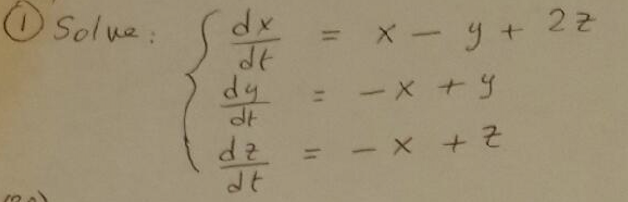 ① Solve: { dx/dt = x - y + 2z
dy/dt = -x + y
dz/dt = -x + z